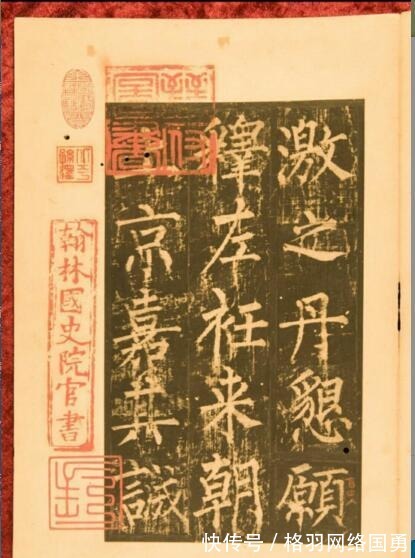 激之丹懇願
釋左衽来朝
上京嘉其誠
翰林國史院官書
快传号/格羽网络国勇